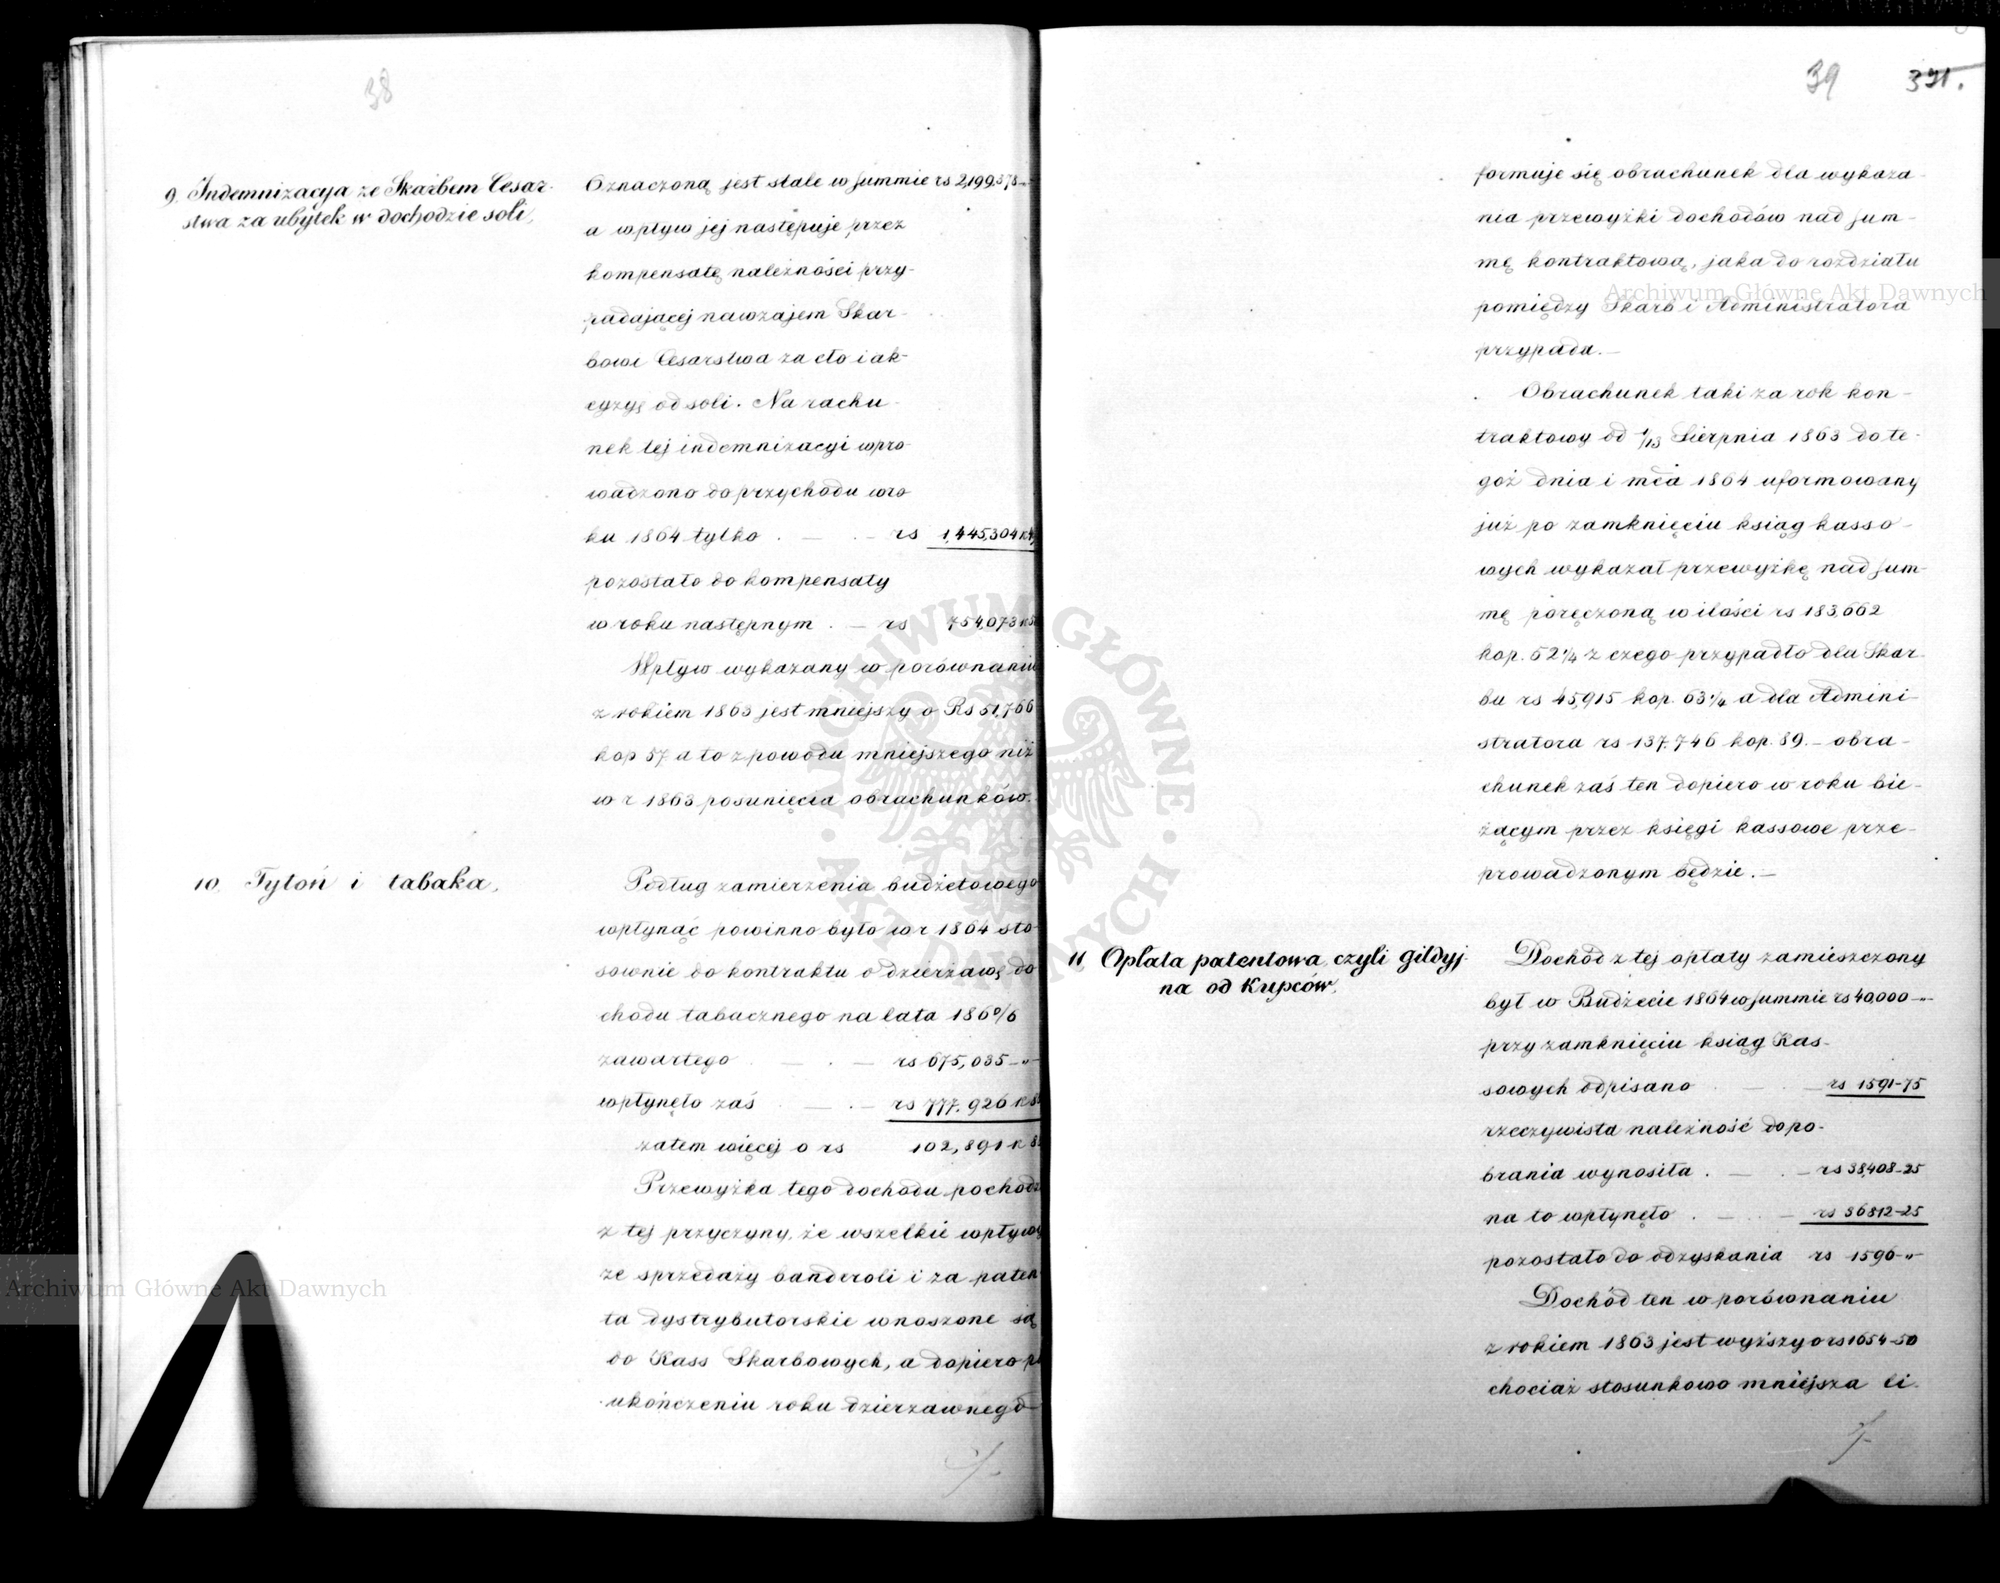 38
9. Indemnizacya ze Skarbem Cesar-
stwa za ubytek w dochodzie soli,
Oznaczoną jest stale w summie rs 2,199.378 –
a wpływ jej następuje przez
kompensatę należności przy-
padającej nawzajem Skar-
bowi Cesarstwa za cło i ak-
cyzę od soli. Na rachu-
nek tej indemnizacyi wpro-
wadzono do przychodu w ro-
ku 1864 tylko . — . – rs 1,445,304 k 4
pozostało do kompensaty
w roku następnym . — rs 754,073 k
Wpływ wykazany w porównaniu
z rokiem 1863 jest mniejszy o Rs 51,766
kop 57 a to z powodu mniejszego niż
w r 1863 posunięcia obrachunków.
10. Tytoń i tabaka,
Podług zamierzenia budżetowego
wpłynąć powinno było w r 1864 sto-
sownie do kontraktu o dzierżawę do-
chodu tabacznego na lata 186 0/6
zawartego — . — rs 675,035 – „ –
wpłynęło zaś — . – rs 777.926 k
zatem więcej o rs 102,891 k 8
Przewyżka tego dochodu pochodzi
z tej przyczyny, że wszelkie wpływy
ze sprzedaży banderoli i za paten-
ta dystrybutorskie wnoszone są
do Kass Skarbowych, a dopiero po
ukończeniu roku dzierżawnego
./.
39 371.
formuje się obrachunek dla wykaza-
nia przewyżki dochodów nad sum-
mę kontraktową, jaka do rozdziału
pomiędzy Skarb i Administratora
przypada. —
Obrachunek taki za rok kon-
traktowy od 1/13 Sierpnia 1863 do te-
goż dnia i mca 1864 uformowany
już po zamknięciu ksiąg kasso-
wych wykazał przewyżkę nad sum-
mę poręczoną w ilości rs 183,662
kop. 52 1/4 z czego przypadło dla Skar-
bu rs 45,915 kop. 63 1/4 a dla Admini-
stratora rs 137.746 kop. 89. – obra-
chunek zaś ten dopiero w roku bie-
żącym przez księgi kassowe prze-
prowadzonym będzie. —
11 Opłata patentowa, czyli gildyj-
na od Kupców,
Dochód z tej opłaty zamieszczony
był w Budżecie 1864 w summie rs 40,000 – „
przy zamknięciu ksiąg Kas-
sowych odpisano — rs 1591–75
rzeczywista należność do po-
brania wynosiła . — . – rs 38,408–25
na to wpłynęło . — . — rs 36812–25
pozostało do odzyskania rs 1596 – „ –
Dochód ten w porównaniu
z rokiem 1863 jest wyższy o rs 1654–50
chociaż stosunkowo mniejsza li-
./.
Archiwum Główne Akt Dawnych
Archiwum Główne Akt Dawnych
ARCHIWUM GŁÓWNE · AKT DAWNYCH ·